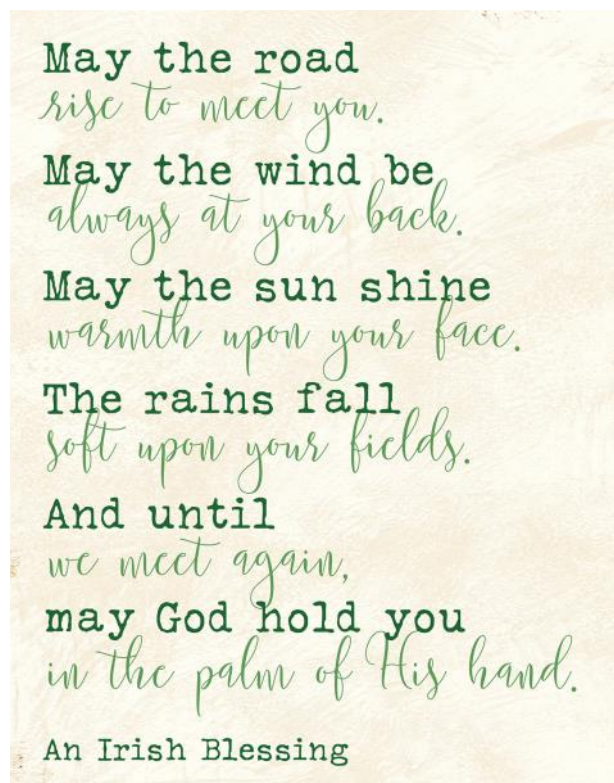 May the road
rise to meet you.
May the wind be
always at your back.
May the sun shine
warmth upon your face.
The rains fall
soft upon your fields.
And until
we meet again,
may God hold you
in the palm of His hand.
An Irish Blessing